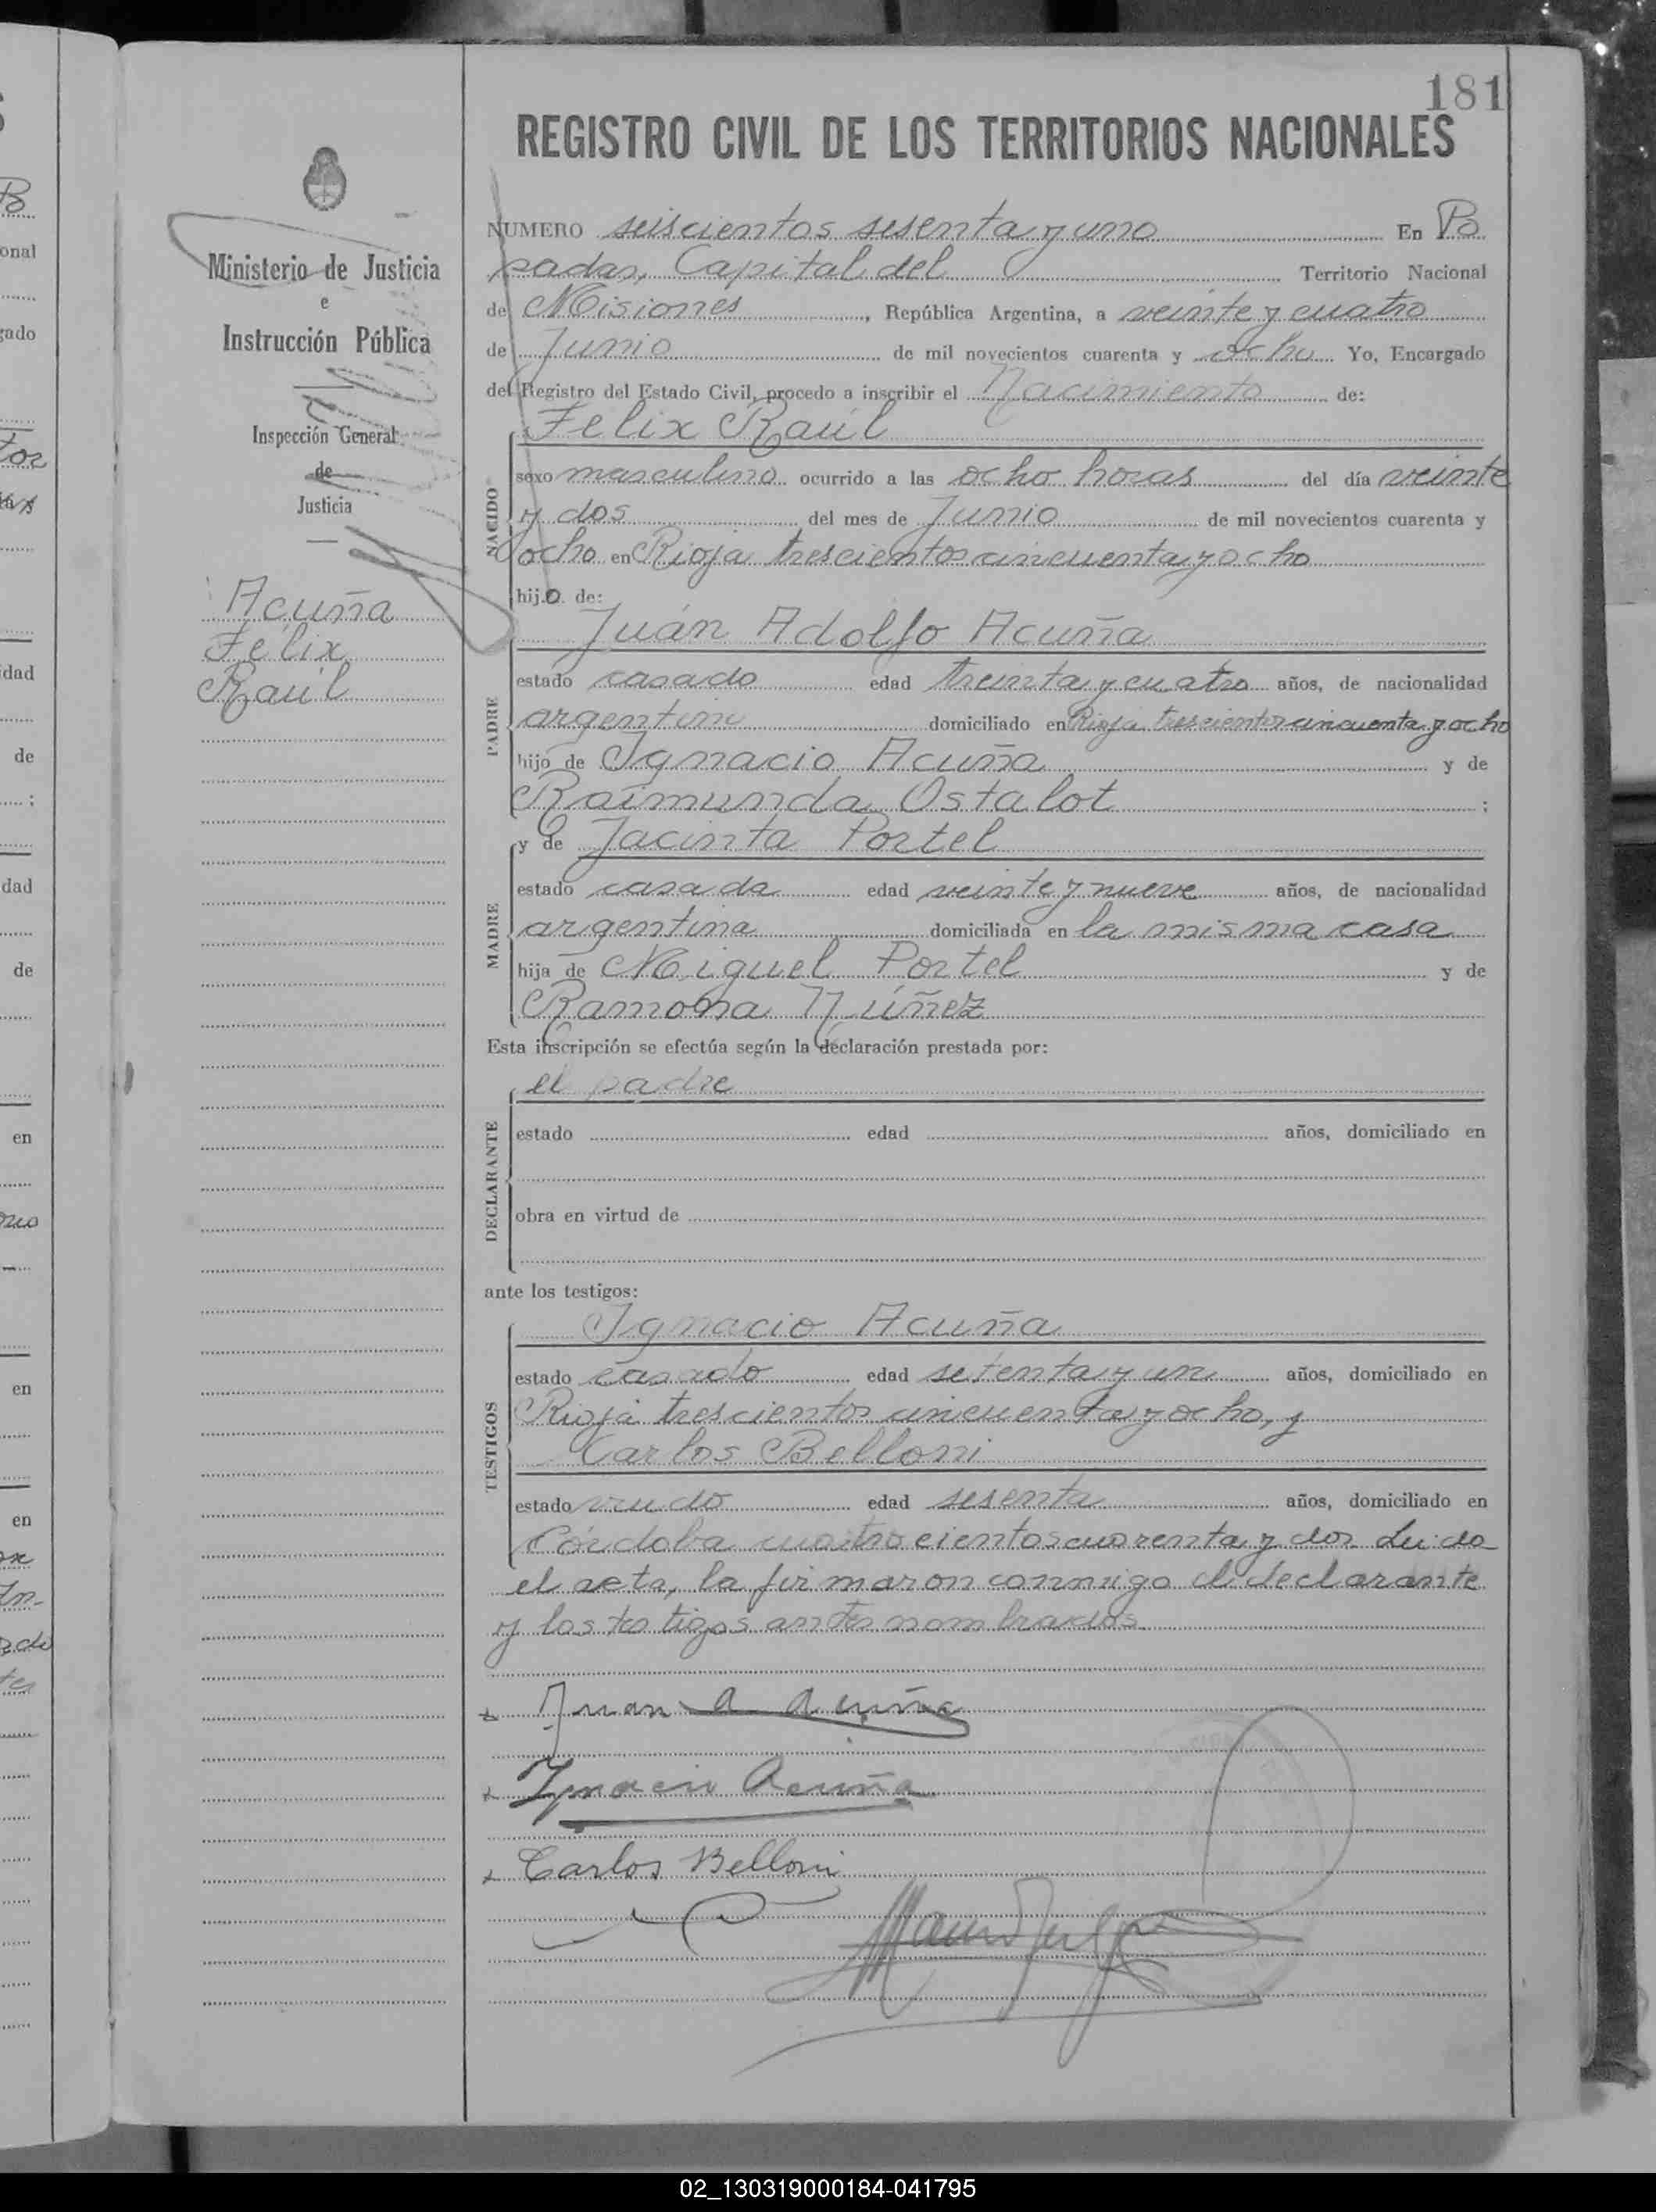 181
REGISTRO CIVIL DE LOS TERRITORIOS NACIONALES
Ministerio de Justicia
e
Instrucción Pública
Inspección General
de
Justicia
Acuña
Félix
Raúl
NUMERO seiscientos sesenta y uno En Po
sadas, Capital del Territorio Nacional
de Misiones, República Argentina, a veinte y cuatro
de Junio de mil novecientos cuarenta y ocho Yo, Encargado
del Registro del Estado Civil, procedo a inscribir el Nacimiento de:
NACIDO
Felix Raúl
sexo masculino ocurrido a las ocho horas del día veinte
y dos del mes de Junio de mil novecientos cuarenta y
ocho en Rioja trescientos cincuenta y ocho
hijo de:
PADRE
Juán Adolfo Acuña
estado casado edad treinta y cuatro años, de nacionalidad
argentino domiciliado en Rioja trescientos cincuenta y ocho
hijo de Ignacio Acuña y de
Raimunda Ostalot ;
MADRE
y de Jacinta Portel
estado casada edad veinte y nueve años, de nacionalidad
argentina domiciliada en la misma casa
hija de Miguel Portel y de
Ramona Núñez
Esta inscripción se efectúa según la declaración prestada por:
DECLARANTE
el padre
estado edad años, domiciliado en
obra en virtud de
ante los testigos:
TESTIGOS
Ignacio Acuña
estado casado edad setenta y un años, domiciliado en
Rioja trescientos cincuenta y ocho, y
Carlos Belloni
estado viudo edad sesenta años, domiciliado en
Córdoba cuatrocientos cuarenta y dos Leido
el acta, la firmaron conmigo el declarante
y los testigos antes nombrados
Juan A Acuña
Ignacio Acuña
Carlos Belloni
02_130319000184-041795